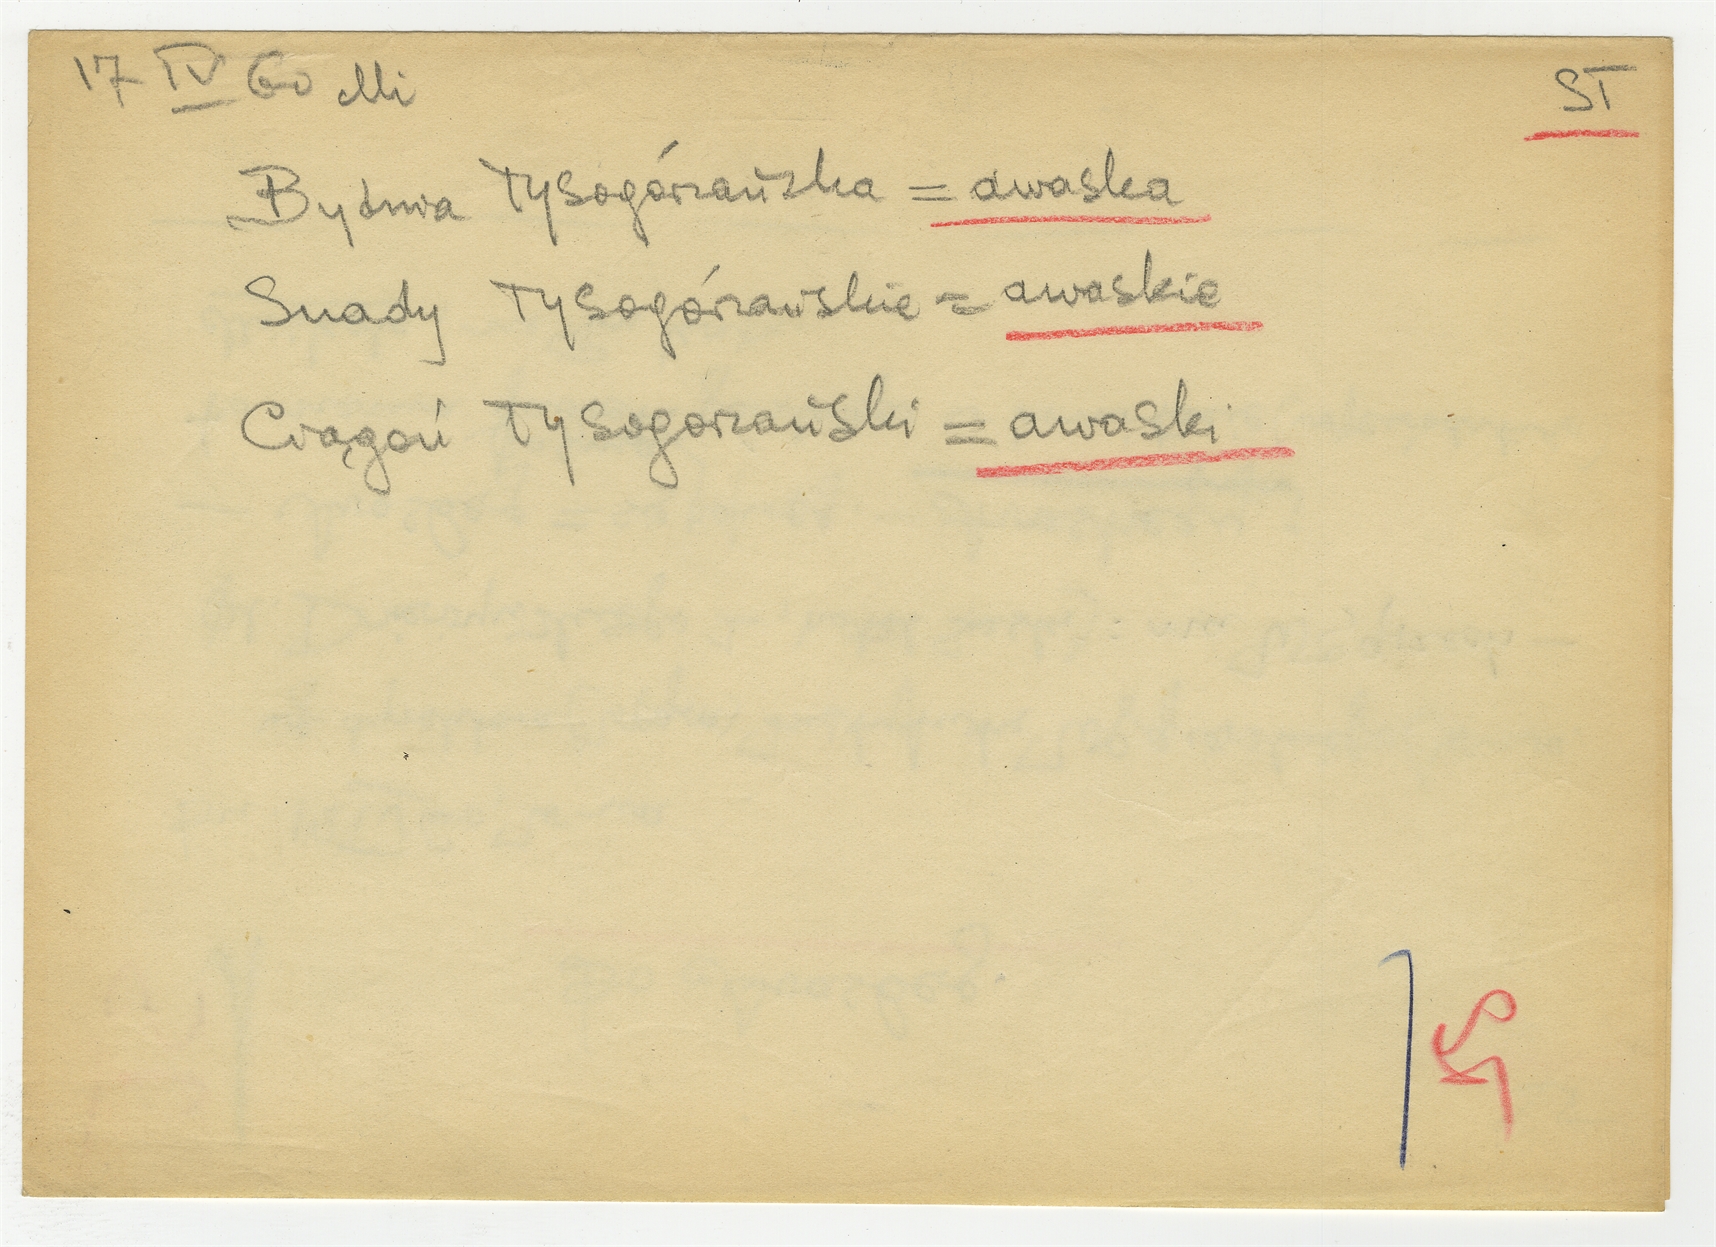 17 IV 60 Mi
ST
Bydnia Tysogórzańska = awaska
Snady Tysogórzańskie = awaskie
Crągoń Tysogorzański = awaski